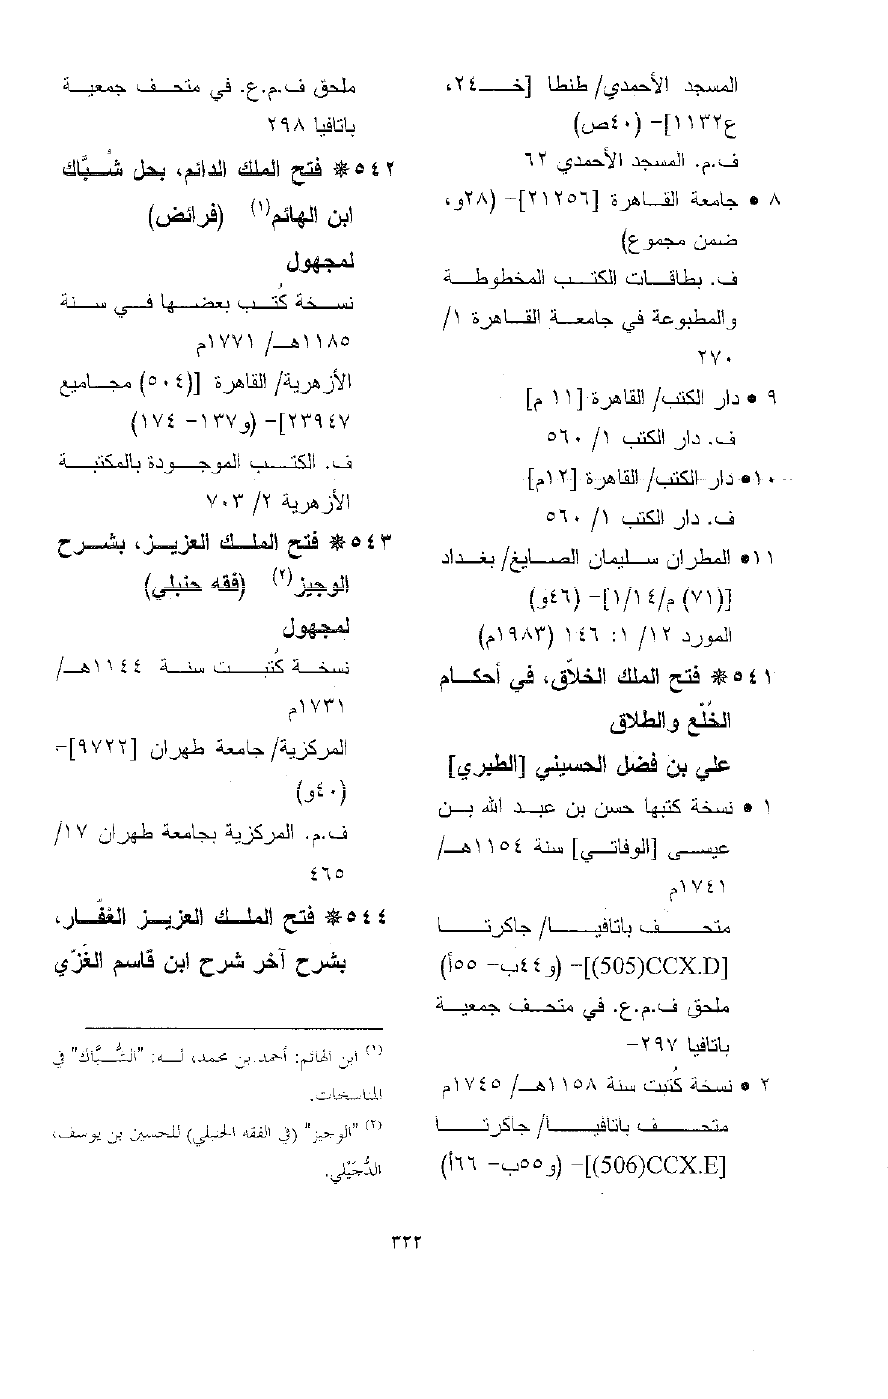 المسجد الأحمدي/ طنطا [خـ ٢٤،
ع١١٣٢]- (٤٠ص)
ف.م. المسجد الأحمدي ٦٢
٨ • جامعة القاهرة [٢١٢٥٦]- (٢٨و،
ضمن مجموع)
ف. بطاقات الكتب المخطوطة
والمطبوعة في جامعة القاهرة ١/
٢٧٠
٩ • دار الكتب/ القاهرة [١١ م]
ف. دار الكتب ١/ ٥٦٠
١٠• دار الكتب/ القاهرة [١٢م]
ف. دار الكتب ١/ ٥٦٠
١١• المطران سليمان الصايغ/ بغداد
[(٧١) م/١/١٤]- (٤٦و)
المورد ١٢/ ١: ١٤٦ (١٩٨٣م)
٥٤١* فتح الملك الخلاّق، في أحكام
الخُلْع والطلاق
علي بن فضل الحسيني [الطبري]
١ • نسخة كتبها حسن بن عبد الله بن
عيسى [الوفاتي] سنة ١١٥٤هـ/
١٧٤١م
متحف باتافيا/ جاكرتا
[CCX.D(505)]- (و٤٤ب- ٥٥أ)
ملحق ف.م.ع. في متحف جمعية
باتافيا ٢٩٧-
٢ • نسخة كُتبت سنة ١١٥٨هـ/ ١٧٤٥م
متحف باتافيا/ جاكرتا
[CCX.E(506)]- (و٥٥ب- ٦٦أ)
ملحق ف.م.ع. في متحف جمعية
باتافيا ٢٩٨
٥٤٢* فتح الملك الدائم، بحل شُبَّاك
ابن الهائم(١) (فرائض)
لمجهول
نسخة كُتب بعضها في سنة
١١٨٥هـ/ ١٧٧١م
الأزهرية/ القاهرة [(٥٠٤) مجاميع
٢٣٩٤٧]- (و١٣٧- ١٧٤)
ف. الكتب الموجودة بالمكتبة
الأزهرية ٢/ ٧٠٣
٥٤٣* فتح الملك العزيز، بشرح
الوجيز(٢) (فقه حنبلي)
لمجهول
نسخة كُتبت سنة ١١٤٤هـ/
١٧٣١م
المركزية/ جامعة طهران [٩٧٢٢]-
(٤٠و)
ف.م. المركزية بجامعة طهران ١٧/
٤٦٥
٥٤٤* فتح الملك العزيز الغفّار،
بشرح آخر شرح ابن قاسم الغَزّي
(١) ابن الهائم: أحمد بن محمد، له: "الشُّبَّاك" في
المناسخات.
(٢) "الوجيز" (في الفقه الحنبلي) للحسين بن يوسف،
الدُّجَيْلي.
٣٢٢